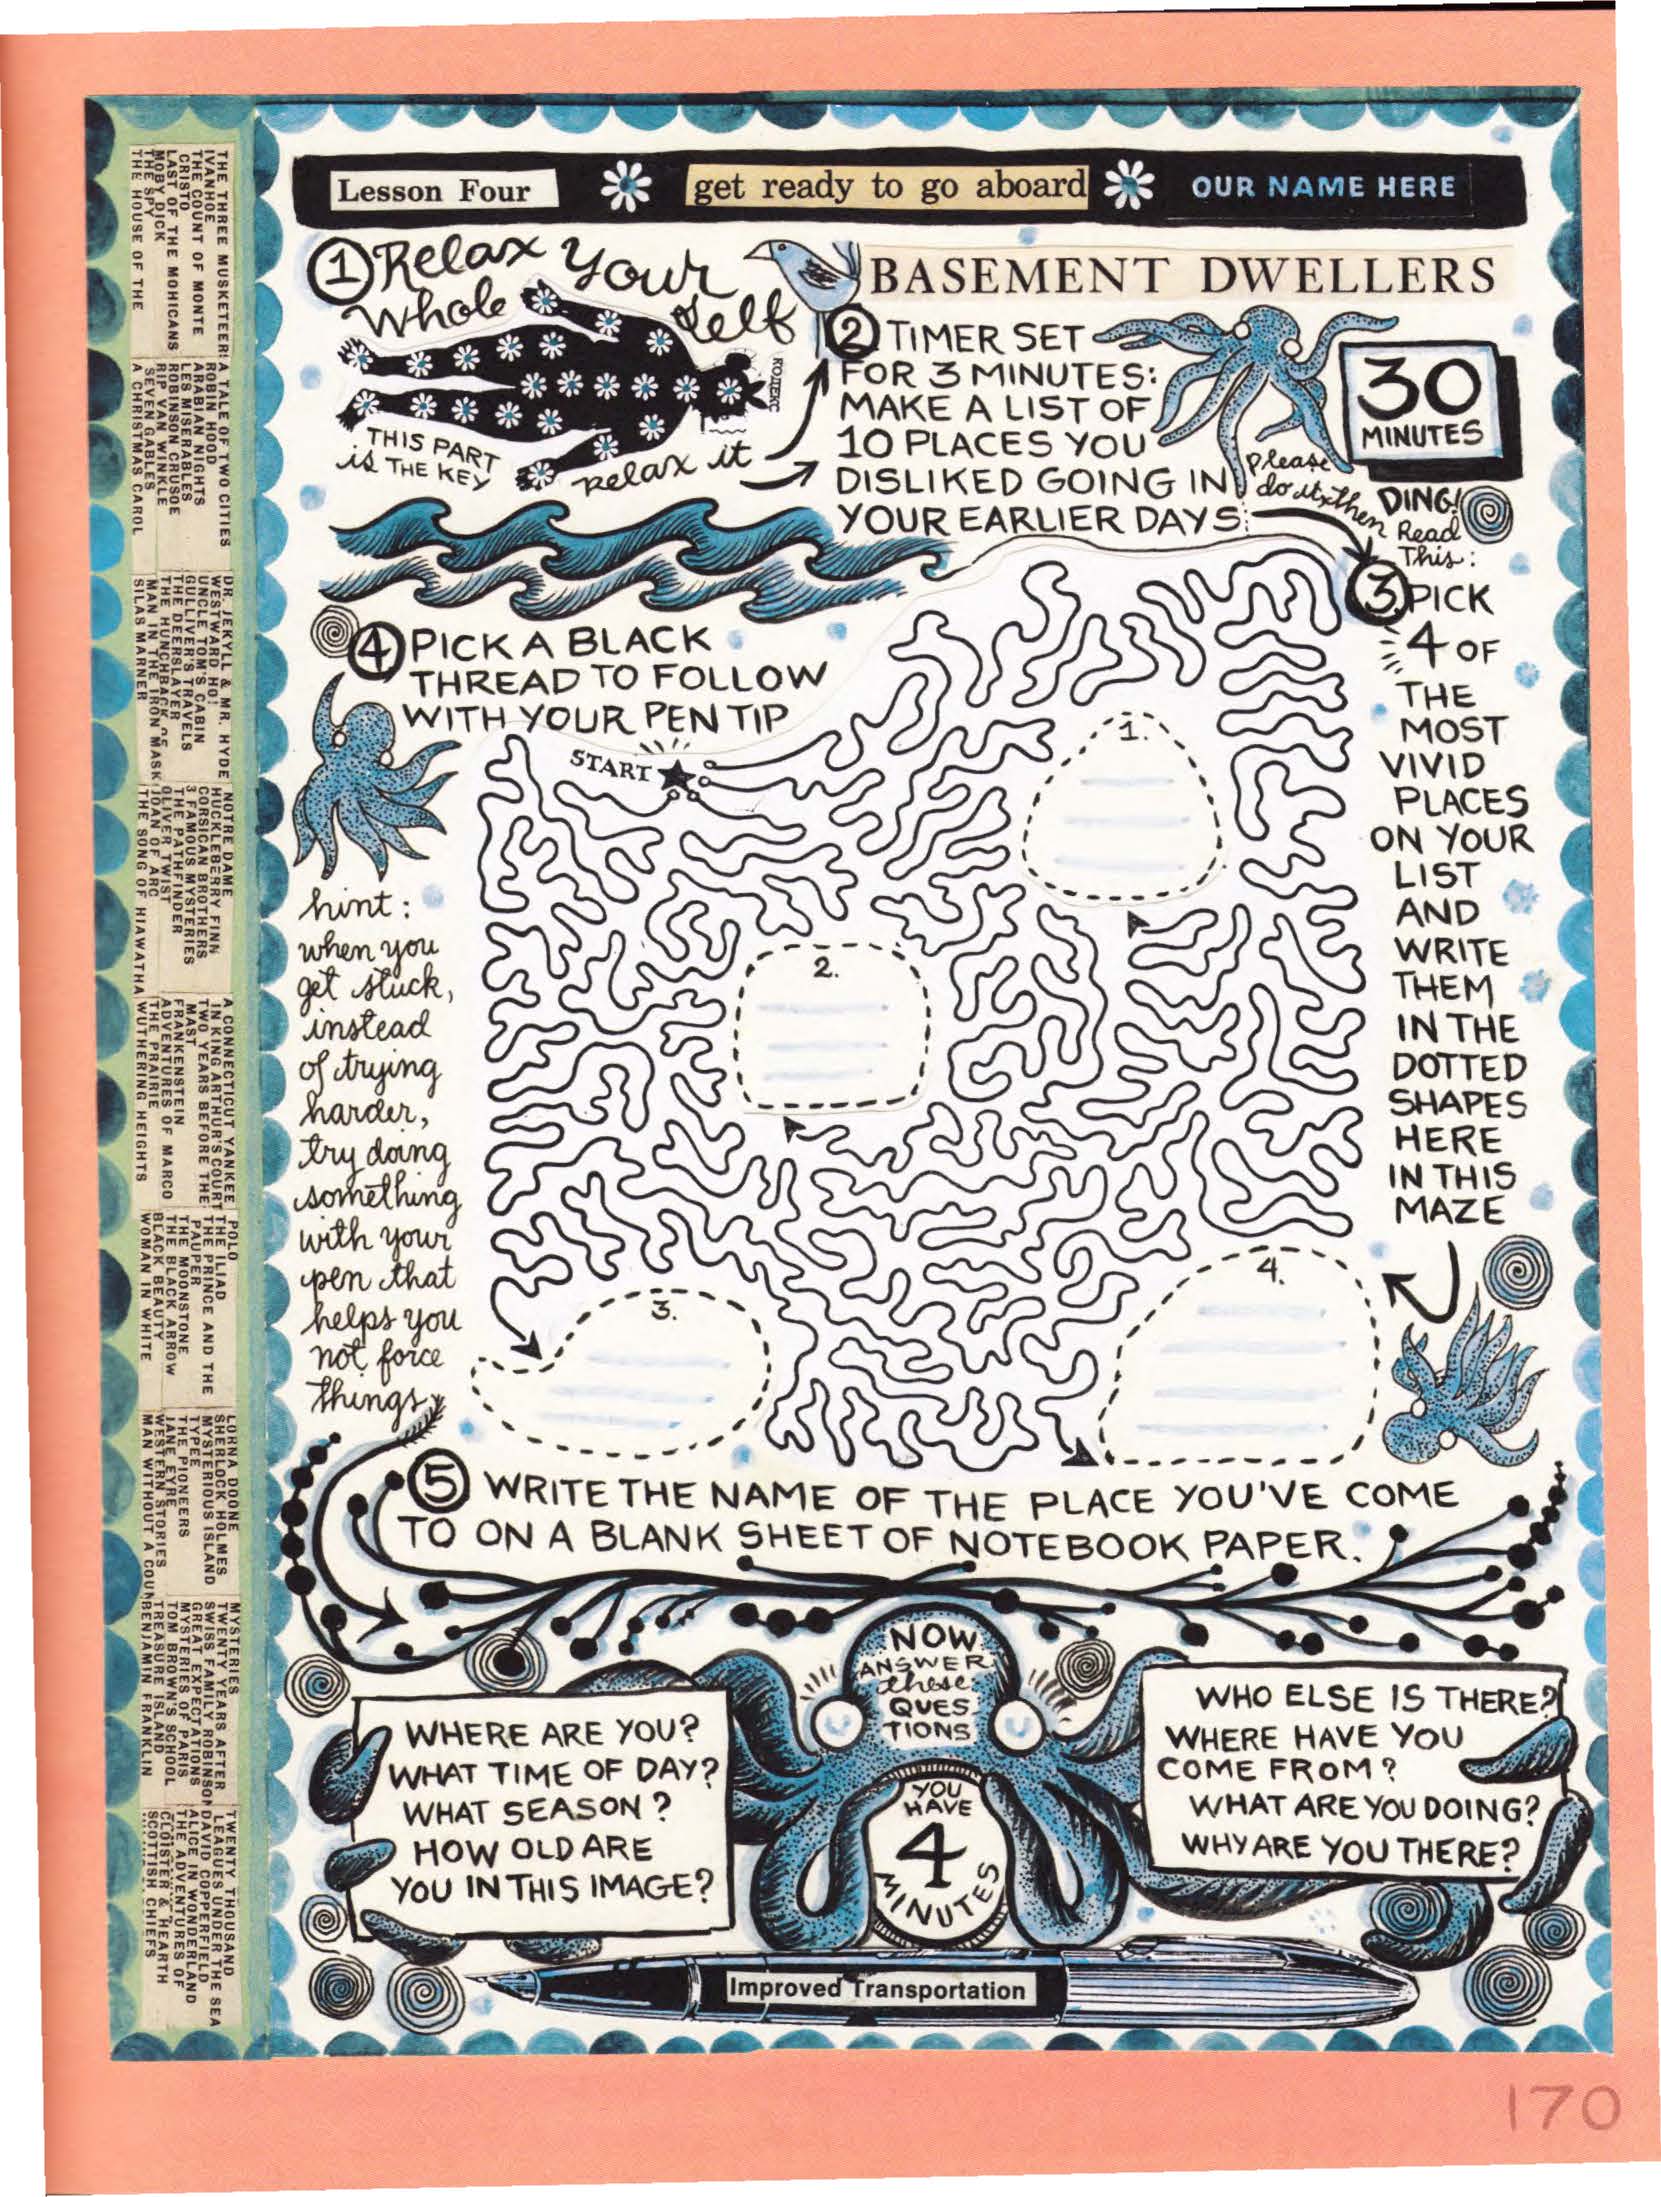 Lesson Four
get ready to go aboard
OUR NAME HERE
BASEMENT DWELLERS
1 Relax Your
Whole Self
THIS PART
is THE KEY
relax it
2 TIMER SET
FOR 3 MINUTES:
MAKE A LIST OF
10 PLACES YOU
DISLIKED GOING IN
YOUR EARLIER DAYS
30
MINUTES
DING!
Please
do it, then Read
This:
3. PICK
4 OF
THE
MOST
VIVID
PLACES
ON YOUR
LIST
AND
WRITE
THEM
IN THE
DOTTED
SHAPES
HERE
IN THIS
MAZE
4 PICK A BLACK
THREAD TO FOLLOW
WITH YOUR PEN TIP
START
1.
2.
3.
4.
hint:
when you
get stuck,
instead
of trying
harder,
try doing
something
with your
pen that
helps you
not force
things
5 WRITE THE NAME OF THE PLACE YOU'VE COME
TO ON A BLANK SHEET OF NOTEBOOK PAPER.
NOW
ANSWER
these
QUES-
TIONS
YOU
HAVE
4
MINUTES
WHERE ARE YOU?
WHAT TIME OF DAY?
WHAT SEASON?
HOW OLD ARE
YOU IN THIS IMAGE?
WHO ELSE IS THERE?
WHERE HAVE YOU
COME FROM?
WHAT ARE YOU DOING?
WHY ARE YOU THERE?
Improved Transportation
170
THE THREE MUSKETEERS
IVANHOE
THE COUNT OF MONTE
CRISTO
LAST OF THE MOHICANS
MOBY DICK
THE SPY
THE HOUSE OF THE
A TALE OF TWO CITIES
ROBIN HOOD
ARABIAN NIGHTS
LES MISERABLES
ROBINSON CRUSOE
RIP VAN WINKLE
SEVEN GABLES
A CHRISTMAS CAROL
DR. JEKYLL & MR. HYDE
WESTWARD HO!
UNCLE TOM'S CABIN
GULLIVER'S TRAVELS
THE DEERSLAYER
THE HUNCHBACK OF
MAN IN THE IRON MASK
SILAS MARNER
NOTRE DAME
HUCKLEBERRY FINN
CORSICAN BROTHERS
3 FAMOUS MYSTERIES
THE PATHFINDER
OLIVER TWIST
JOAN OF ARC
THE SONG OF HIAWATHA
A CONNECTICUT YANKEE
IN KING ARTHUR'S COURT
TWO YEARS BEFORE THE
MAST
FRANKENSTEIN
ADVENTURES OF MARCO
THE PRAIRIE
WUTHERING HEIGHTS
POLO
THE ILIAD
THE PRINCE AND THE
PAUPER
THE MOONSTONE
THE BLACK ARROW
BLACK BEAUTY
WOMAN IN WHITE
LORNA DOONE
SHERLOCK HOLMES
MYSTERIOUS ISLAND
TYPEE
THE PIONEERS
JANE EYRE
WESTERN STORIES
MAN WITHOUT A COUN
MYSTERIES
TWENTY YEARS AFTER
SWISS FAMILY ROBINSON
GREAT EXPECTATIONS
MYSTERIES OF PARIS
TOM BROWN'S SCHOOL
TREASURE ISLAND
BENJAMIN FRANKLIN
TWENTY THOUSAND
LEAGUES UNDER THE SEA
DAVID COPPERFIELD
ALICE IN WONDERLAND
THE ADVENTURES OF
CLOISTER & HEARTH
SCOTTISH CHIEFS